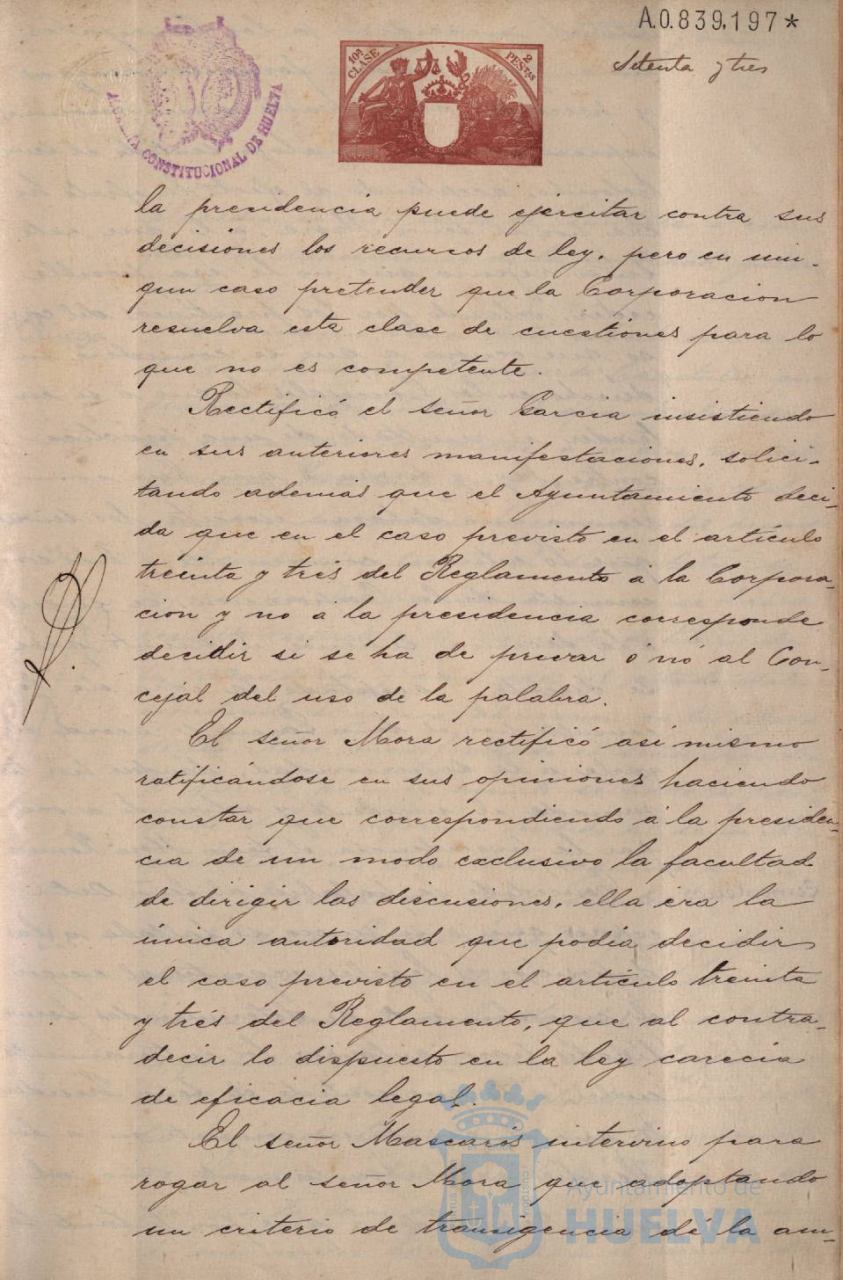 A.0.839.197*
Setenta y tres
ALCALDIA CONSTITUCIONAL DE HUELVA
10ª CLASE
2 PESETAS
la presidencia puede ejercitar contra sus
decisiones los recursos de ley, pero en nin-
gun caso pretender que la Corporacion
resuelva esta clase de cuestiones para lo
que no es competente.
Rectificó el señor Garcia insistiendo
en sus anteriores manifestaciones, solici-
tando además que el Ayuntamiento deci-
da que en el caso previsto en el artículo
treinta y trés del Reglamento á la Corpora-
cion y no á la presidencia corresponde
decidir si se ha de privar ó nó al Con-
cejal del uso de la palabra.
El señor Mora rectificó asi mismo
ratificándose en sus opiniones haciendo
constar que correspondiendo á la presiden-
cia de un modo exclusivo la facultad
de dirigir las discusiones, ella era la
única autoridad que podia decidir
el caso previsto en el artículo treinta
y trés del Reglamento, que al contra-
decir lo dispuesto en la ley carecia
de eficacia legal.
El señor Mascarós intervino para
rogar al señor Mora que adoptando
un criterio de transigencia dé la am-
Ayuntamiento de
HUELVA